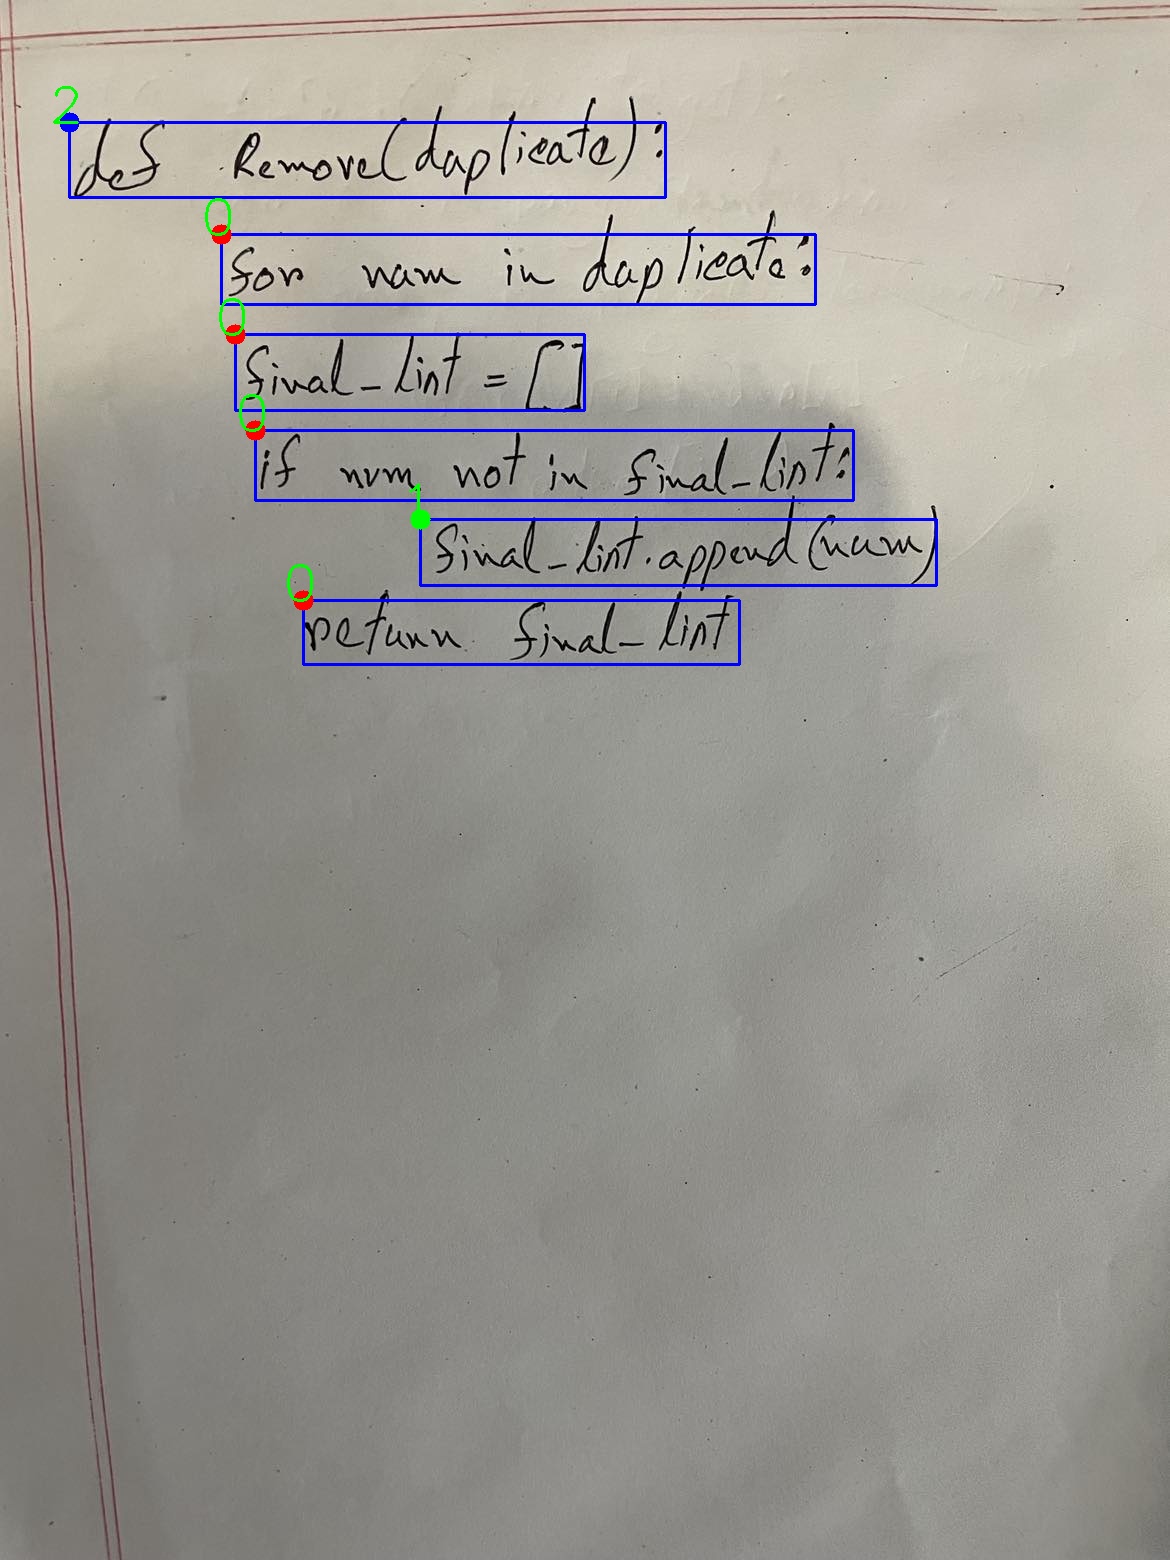 2
def Remove(duplicate):
0
for num in duplicate:
0
final_list = []
0
if num not in final_list:
1
final_list.append(num)
0
return final_list